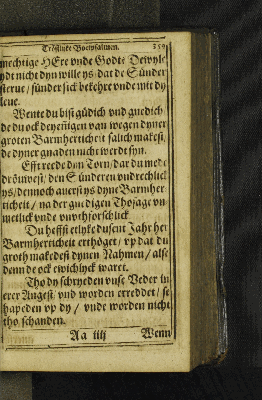 Tröstlike Boetpsalmen. 359
mechtige HEre vnde Godt: Dewyle
ydt nicht dyn wille ys, dat de Sünder
sterue / sünder sick bekehre vnde mit dy
leue.
Wente du bist güdich vnd gnedich
de du ock deyenigen van wegen dyner
groten Barmherticheit salich makest,
de dyner gnaden nicht werdt syn.
Efft rechte dyn Torn / dar du mede
drönwest / den Sünderen vndrechlick
ys / dennoch auerst ys dyne Barmher-
ticheit / na der gnedigen Thosage vn
metlick vnde vnuthforschlick
Du heffst etlyke dusent Jahr her
Barmherticheit ertöget / vp dat du
groth makedest dynen Nahmen / alse
denn de ock ewichlyck waret.
Tho dy schryeden vnse Veder in
erer Angest / vnd worden erreddet / se
hapeden vp dy / vnde worden nicht
tho schanden.
Aa iiij Wenn